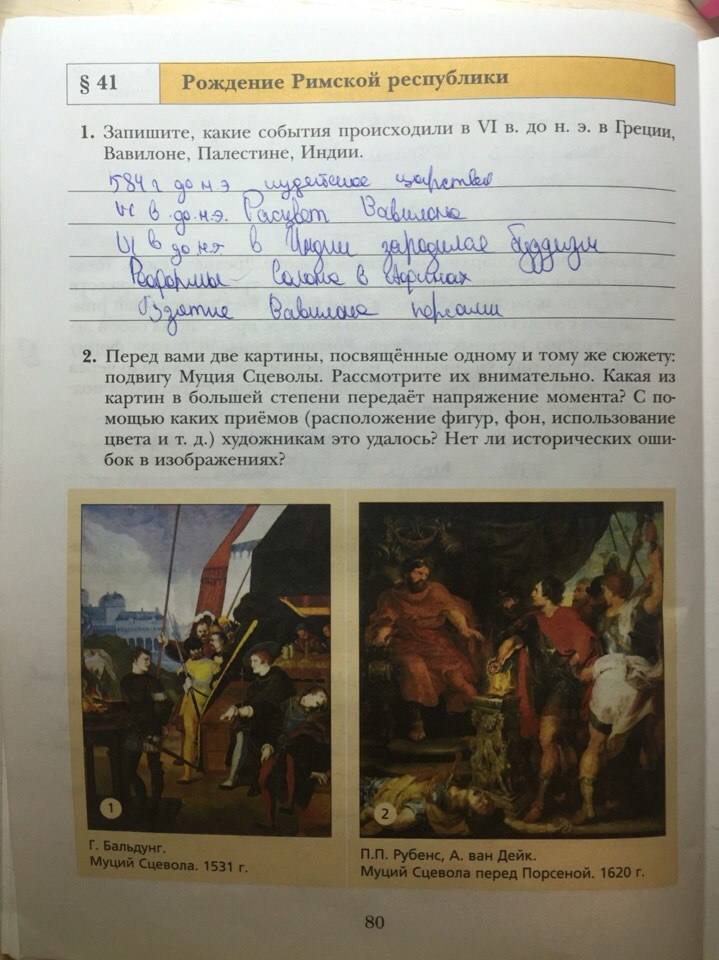 § 41
Рождение Римской республики
1. Запишите, какие события происходили в VI в. до н. э. в Греции,
Вавилоне, Палестине, Индии.
584 г до н э иудейское царство
VI в до.н.э. Расцвет Вавилона
VI в до н.э в Индии зародился буддизм
Реформы Солона в Афинах
Взятие Вавилона персами
2. Перед вами две картины, посвящённые одному и тому же сюжету:
подвигу Муция Сцеволы. Рассмотрите их внимательно. Какая из
картин в большей степени передаёт напряжение момента? С по-
мощью каких приёмов (расположение фигур, фон, использование
цвета и т. д.) художникам это удалось? Нет ли исторических оши-
бок в изображениях?
1
2
Г. Бальдунг.
Муций Сцевола. 1531 г.
П.П. Рубенс, А. ван Дейк.
Муций Сцевола перед Порсеной. 1620 г.
80